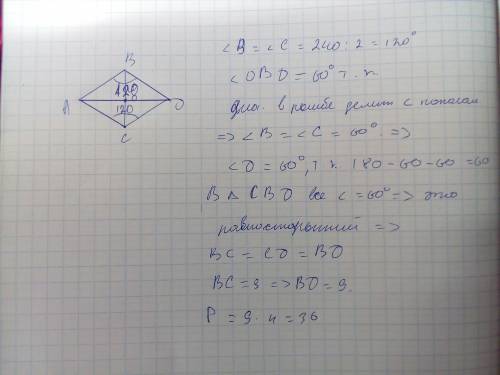 B
120
A
D
120
C
∠B = ∠C = 240 : 2 = 120°
∠OBD = 60° т. к
диаг. в ромбе делит с попалам
=> ∠B = ∠C = 60° =>
∠D = 60°, т к 180 - 60 - 60 = 60
В △ CBD все ∠ = 60° => это
равносторонний =>
BC = CD = BD
BC = 9 => BD = 9.
P = 9 · 4 = 36